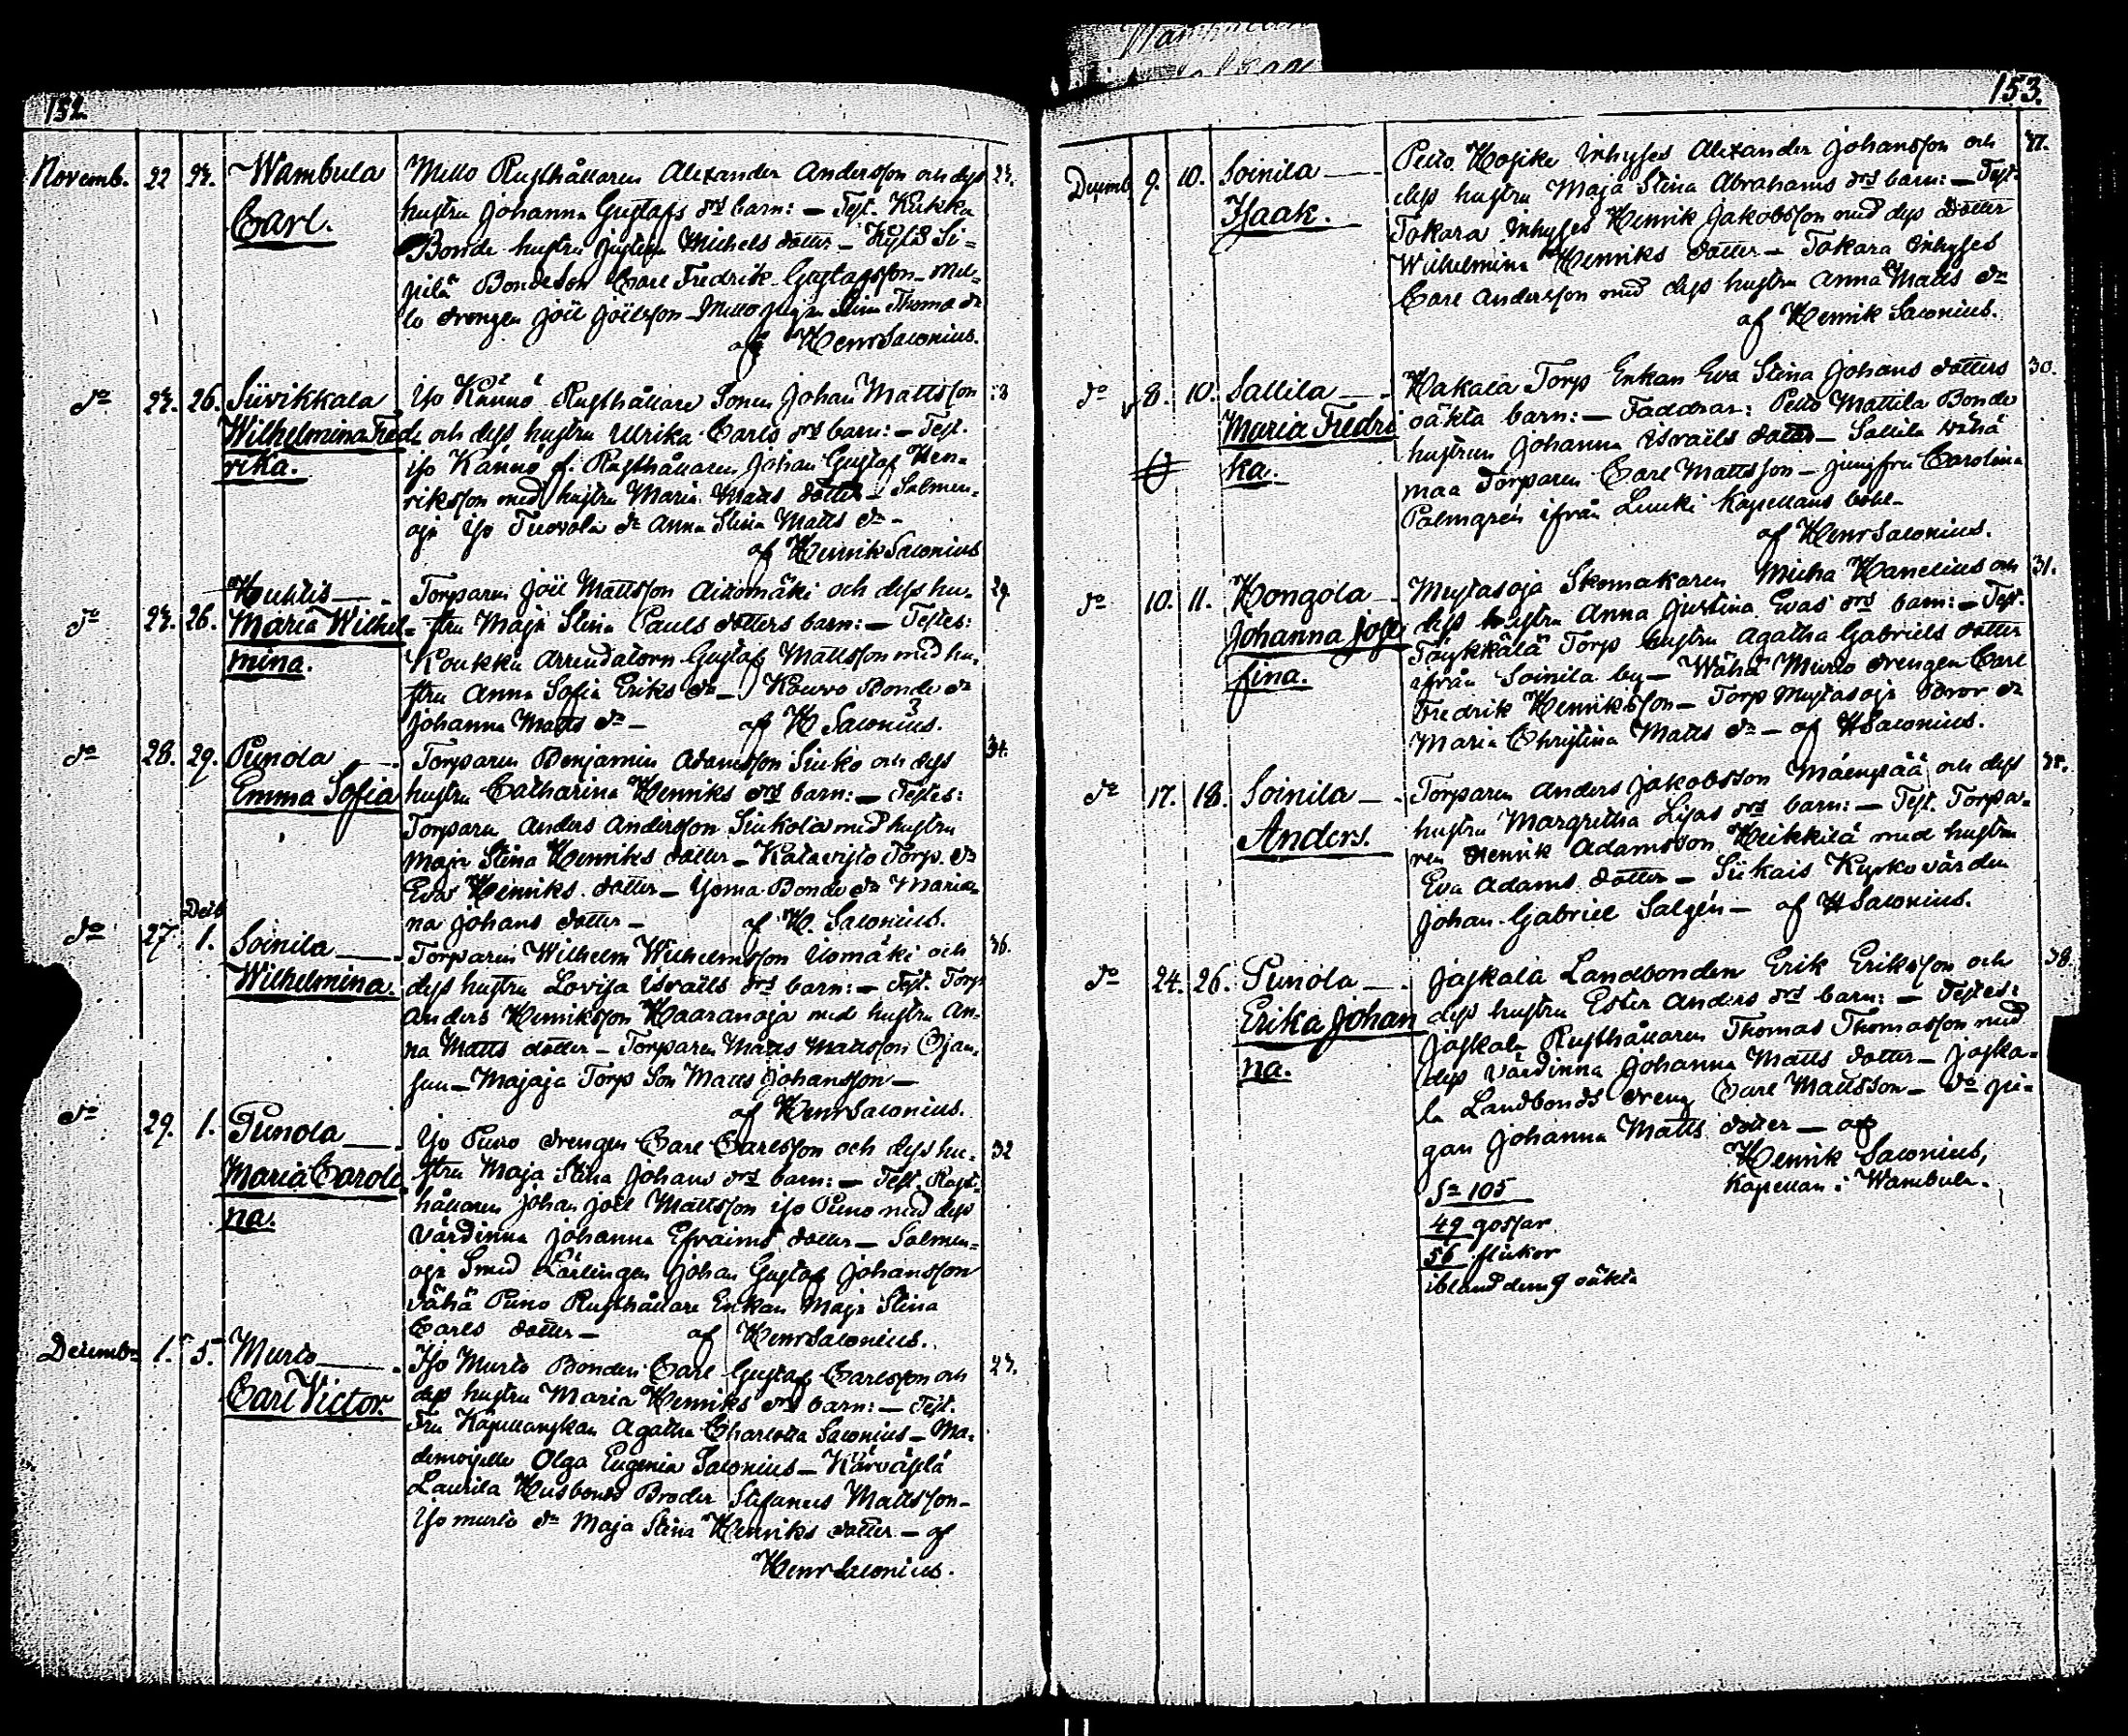 152.
Novemb. 22 24. Wambula
Carl.
Mello Rusthållaren Alexander Andersson och dess 24.
hustru Johanna Gustafs drs barn: — Test. Kukka
Bonde hustru Justina Michels dotter — Kylä Si=
pilä Bondeson Carl Fredrik Gustafsson — Mel=
lo drengen Joël Joëlsson — Mello pigan Stina Thomas dr
af Henr Salonius.
do 24. 26. Siivikkala
Wilhelmina Fred=
rika.
Iso Kännö Rusthållare Sonen Johan Mattsson
och dess hustru Ulrika Carls drs barn: — Test.
iso Kännö f. Rusthållaren Johan Gustaf Hen=
riksson med hustru Maria Matts dotter — Salmen=
oja Iso Tuovola dr Anna Stina Matts dr —
af Henrik Salonius
do 24. 26. Huhtis —
Maria Wilhel=
mina.
Torparen Joël Mattsson Aittomäki och dess hu= 29.
stru Maja Stina Pauls dotters barn: — Testes:
Koukku Arrendatorn Gustaf Mattsson med hu=
stru Anna Sofia Eriks dr — Kouvo Bonde dr
Johanna Matts dr — af H Salonius.
do 28. 29. Punola —
Emma Sofia
Torparen Benjamin Adamsson Siuko och dess 34.
hustru Catharina Henriks drs barn: — Testes:
Torparen Anders Andersson Siukola med hustru
Maja Stina Henriks dotter — Katavisto Torp. dr
Eva Henriks dotter — Yoma Bonde dr Maria=
na Johans dotter — af H. Salonius.
do 27. Decb 1. Soinila —
Wilhelmina.
Torparen Wilhelm Wilhelmsson Uomäki och 36.
dess hustru Lovisa Israëls drs barn: — Test. Torp
Anders Henriksson Haaranoja med hustru An=
na Matts dotter — Torparen Matts Mattsson Ojan=
suu — Majaja Torp Son Matts Johansson —
af Henr Salonius.
do 29. 1. Punola —
Maria Caroli
na.
Iso Puno drengen Carl Carlsson och dess hu= 32
stru Maja Stina Johans drs barn: — Test. Rust=
hållaren Johan Joël Mattsson iso Puno med dess
värdinna Johanna Efraims dotter — Salmen=
oja Smed Lärlingen Johan Gustaf Johansson
vähä Puno Rusthållare Enkan Maja Stina
Carls dotter — af Henr Salonius.
Decembr 1. 5. Murto —
Carl Victor.
Iso Murto Bonden Carl Gustaf Carlsson och 24.
dess hustru Maria Henriks drs barn: — Test.
Fru Kapellanskan Agatha Charlotta Salonius — Ma=
demoiselle Olga Eugenia Salonius — Kärväselä
Laurila Husbonds Broder Stefanus Mattsson —
Iso murto dr Maja Stina Henriks dotter — af
Henr Salonius.
153.
Decemb. 9. 10. Soinila —
Isaak.
Pelto Hosike inhyses Alexander Johansson och 41.
dess hustru Maja Stina Abrahams drs barn: — Test.
Tokara inhyses Henrik Jakobsson med dess dotter
Wilhelmina Henriks dotter — Tokara inhyses
Carl Andersson med dess hustru Anna Matts dr
af Henrik Salonius.
do 8. 10. Sallila —
Maria Fredri
ka.
Hakala Torp Enkan Eva Stina Johans dotters 30.
oäkta barn: — Faddrar: Pelto Mattila Bonde
hustrun Johanna Israëls dotter — Sallila vähä
maa Torparen Carl Mattsson — jungfru Carolina
Palmgrén ifrån Luuki Kapellans bohl —
af Henr Salonius.
do 10. 11. Kongola —
Johanna Jose
fina.
Mustasoja Skomakaren Micha Hanelius och 31.
dess hustru Anna Justina Evas drs barn: — Test.
Töykkälä Torp hustru Agatha Gabriels dotter
ifrån Soinila by — Wähä Murto drengen Carl
Fredrik Henriksson — Torp Mustasoja
Maria Christina Matts dr — af H Salonius.
do 17. 18. Soinila —
Anders.
Torparen Anders Jakobsson Mäenpää och dess
hustru Margretha Lisas drs barn: — Test. Torpa=
ren Henrik Adamsson Heikkilä med hustru
Eva Adams dotter — Siikais Kyrkovärden
Johan Gabriel Salgén — af H Salonius.
do 24. 26. Punola —
Erika Johan
na.
Jaskala Landbonden Erik Eriksson och 38.
dess hustru Ester Anders drs barn: — Testes:
Jaskala Rusthållaren Thomas Thomasson med
dess värdinna Johanna Matts dotter — Jaska=
la Landbonds dreng Carl Mattsson — do pi=
gan Johanna Matts dotter — af
Henrik Salonius,
Kapellan i Wambula.
Sa 105
49 gossar
56 flickor
ibland dem 9 oäkta